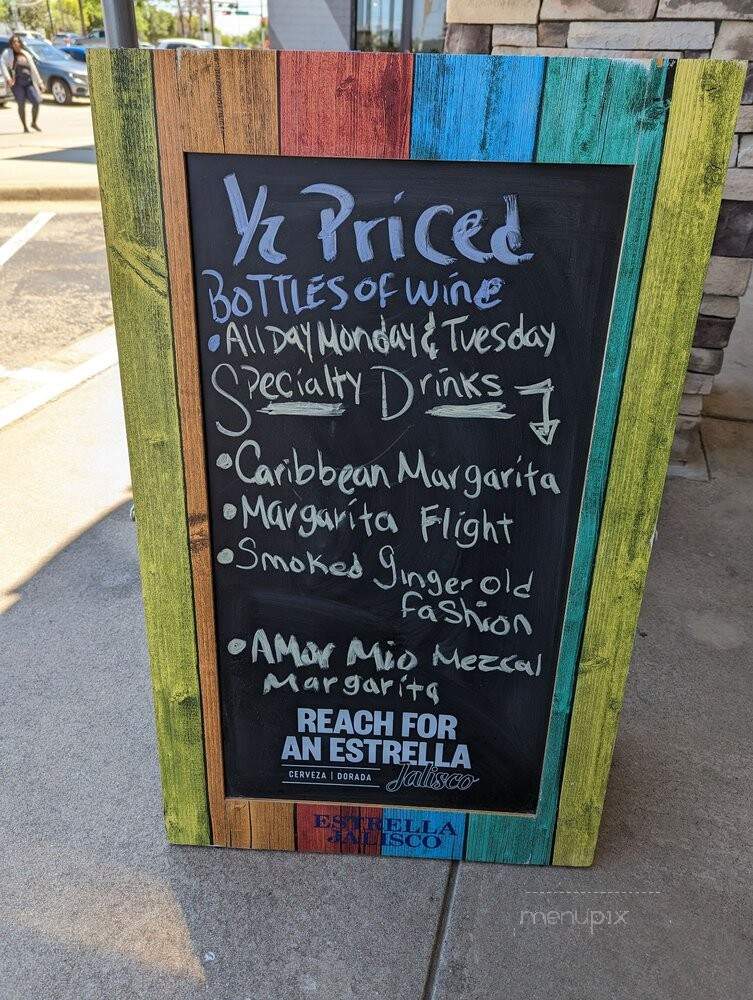 1/2 Priced
BOTTLES OF WINE
• All Day Monday & Tuesday
Specialty Drinks
• Caribbean Margarita
• Margarita Flight
• Smoked Ginger old
fashion
• AMor Mio Mezcal
Margarita
REACH FOR
AN ESTRELLA
CERVEZA | DORADA Jalisco
ESTRELLA
JALISCO
menupix